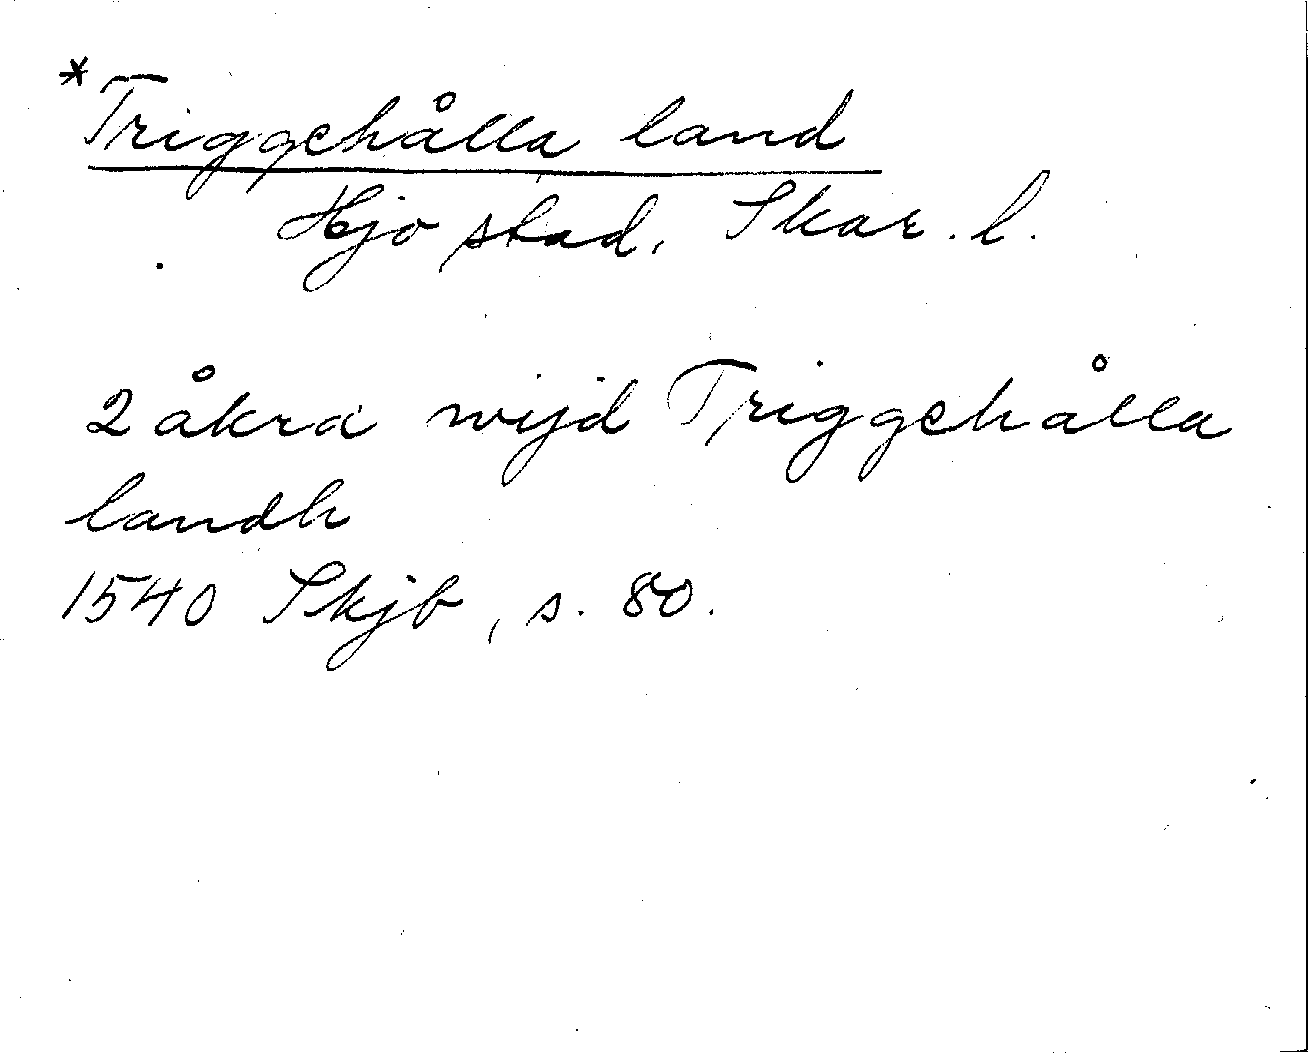 *Triggehålla land
Hjo stad, Skar. l.
2 åkra wijd Triggehålla
landh
1540 Skjb, s. 80.